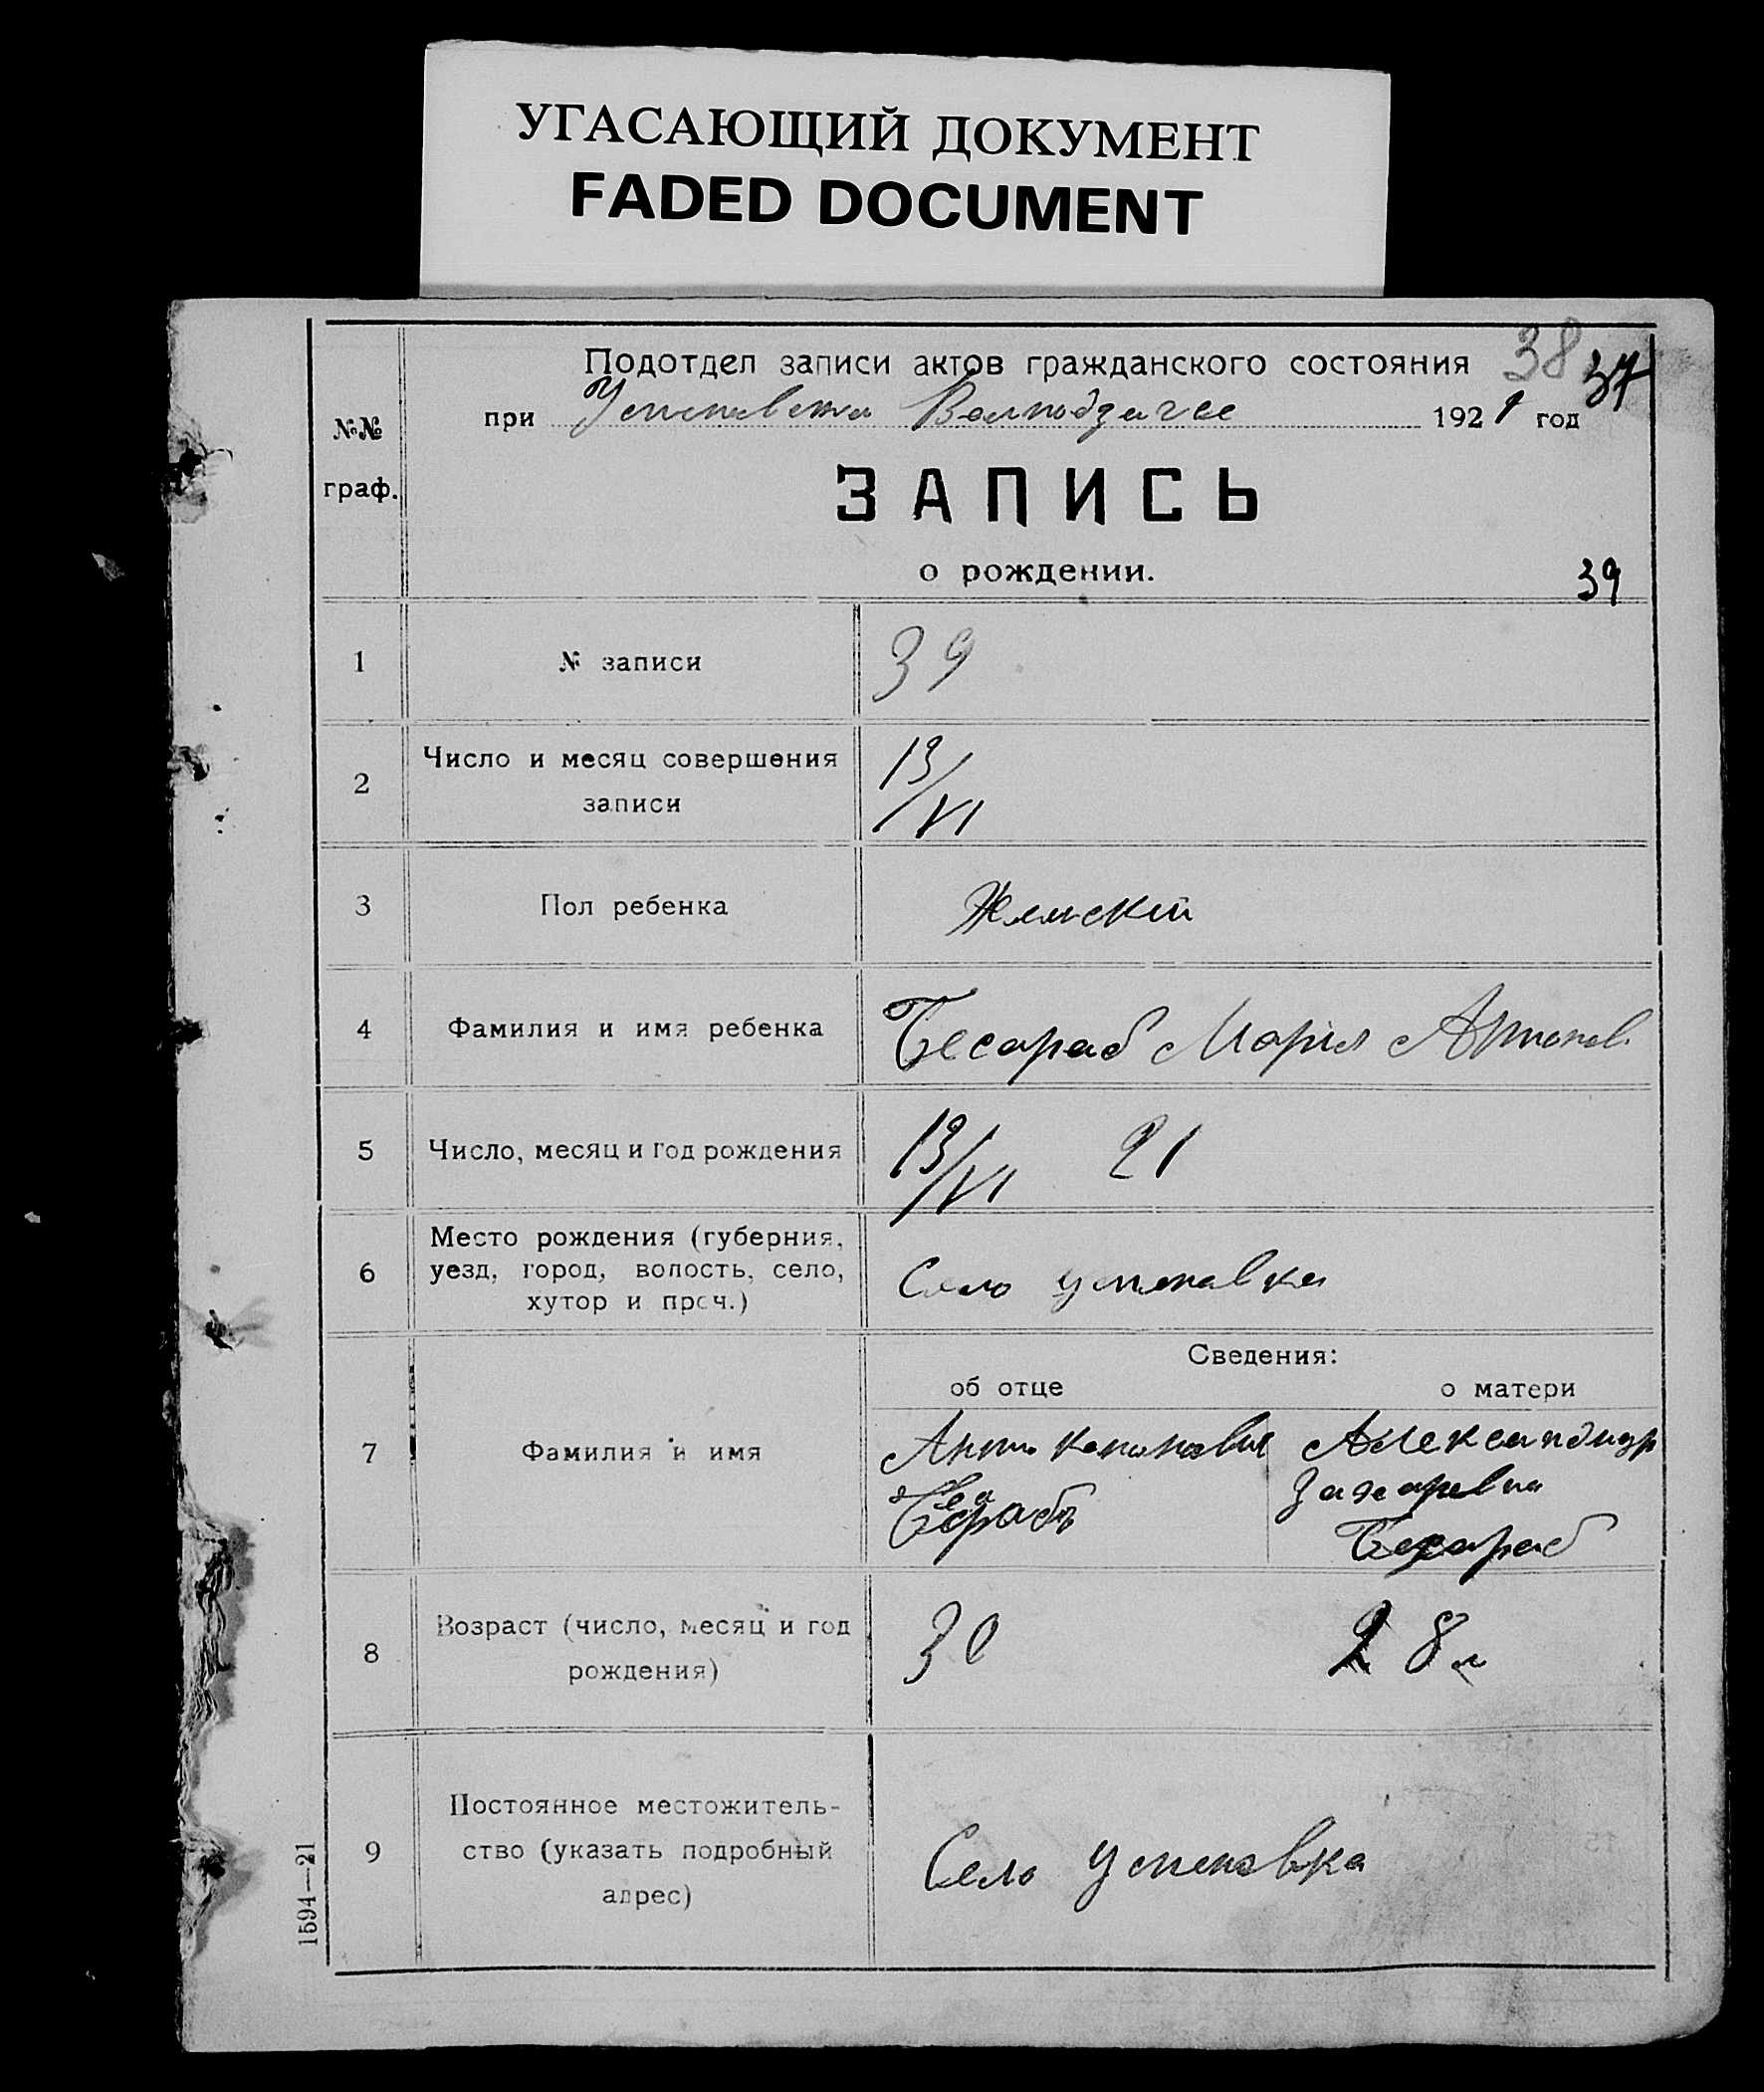 УГАСАЮЩИЙ ДОКУМЕНТ
FADED DOCUMENT
Подотдел записи актов гражданского состояния 38 37
при 1921 год
№№
граф.
ЗАПИСЬ
о рождении.
39
1 № записи 39
2 Число и месяц совершения
записи
13/VI
3 Пол ребенка Женский
4 Фамилия и имя ребенка Бесараб Мария
5 Число, месяц и год рождения 13/VI 21
6 Место рождения (губерния,
уезд, город, волость, село,
хутор и проч.)
Село
Сведения:
об отце о матери
7 Фамилия и имя
Александр
Захаревна
Бесараб
Бесараб
8 Возраст (число, месяц и год
рождения)
30 28 л
9 Постоянное местожитель-
ство (указать подробный
адрес)
Село
1594—21